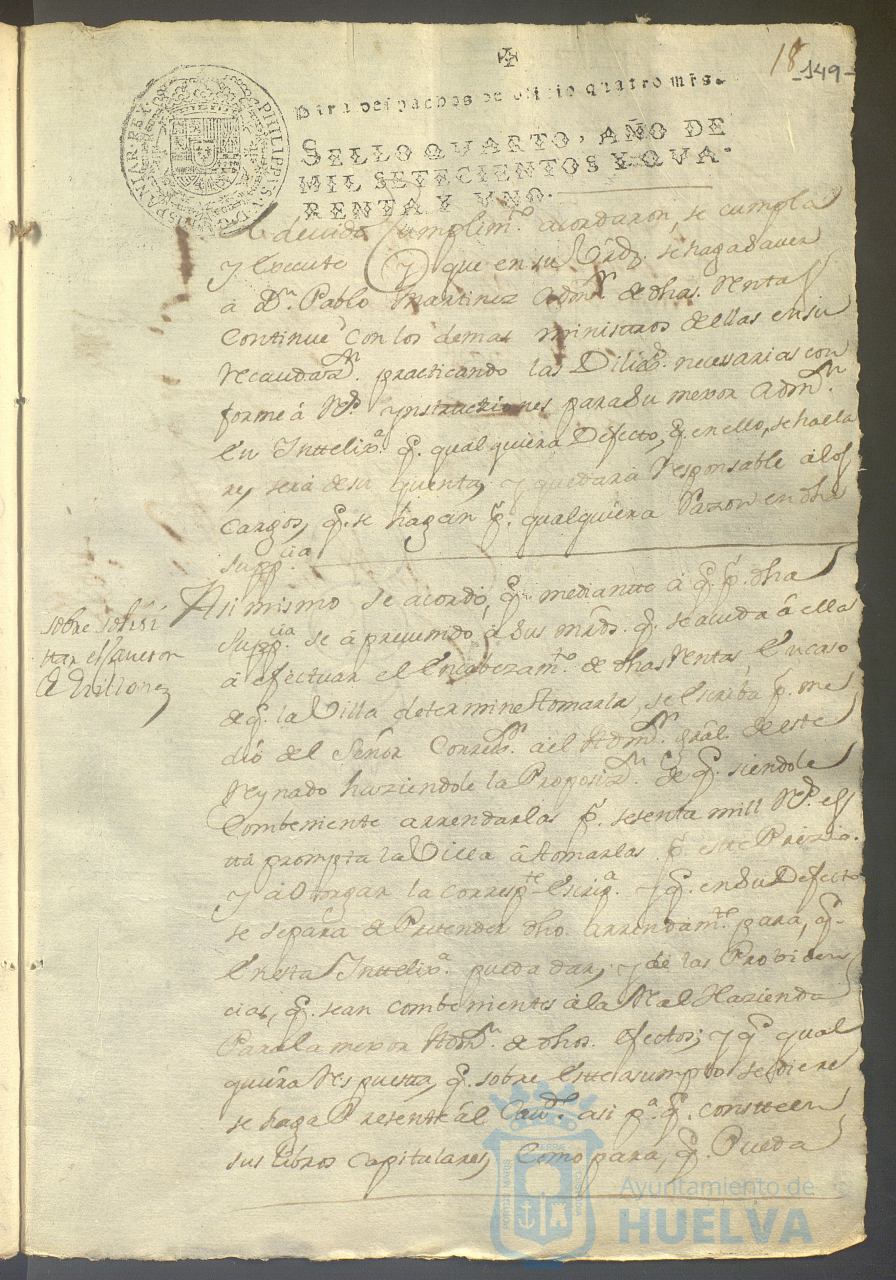 18 -149-
PHILIPPVS. V. D. G. HISPANIAR. REX.
Para despachos de oficio quatro mrs.
SELLO QVARTO, AÑO DE
MIL SETECIENTOS Y QVA-
RENTA Y VNO.
devido Cumplimto. acordaron, se cumpla
y Execute y que en su Vrd. se haga saver
á Dn. Pablo Martinez Admor. de dhas. Rentas
Continue con los demas ministros de ellas en su
recaudazn. practicando las Diligs. necesarias con
forme á Rs. ynstrucziones para su mexor Admon.
En Inttelixa. q. qualquiera Defecto, q. en ello, se halla
re, será de su quenta, y quedará responsable álos
cargos, q. se hagan pr. qualquiera Razon en dha
suppcia.
Asi mismo se acordó, q. mediante á q. pr. dha
sobre solisi
Suppcia se á prevenido, á sus mrds. q. se acuda á ella
ttar el
á efectuar el Encabezamto. de dhas Rentas, En caso
de Millones
de q. la Villa determine tomarla, se Escriba pr. me
dio del Señor Corregr. ael Admor. Gral. de este
Reynado haziendole la Proposizn. de q. siendole
Combeniente arrendarlas pr. sesenta mill Rs. es
tta prompta la Villa á tomarlas pr. este Prezio
y á Otorgar la correspte. Escripa. y q. en su Defecto
se separa de Pretender dho. arrendamto. para, q.
En esta Inttelixa. pueda dar, y dé las Probiden
cias, q. sean combenientes á la Real Hazienda
Para la mexor Admon. de dhos. efectos; y q. qual
quiera Respuesta, q. sobre Este asumpto se diere
se haga Presente ál Cavdo. asi pa. q. constte en
sus libros Capitulares, Como para, q. Pueda
Ayuntamiento de
HUELVA